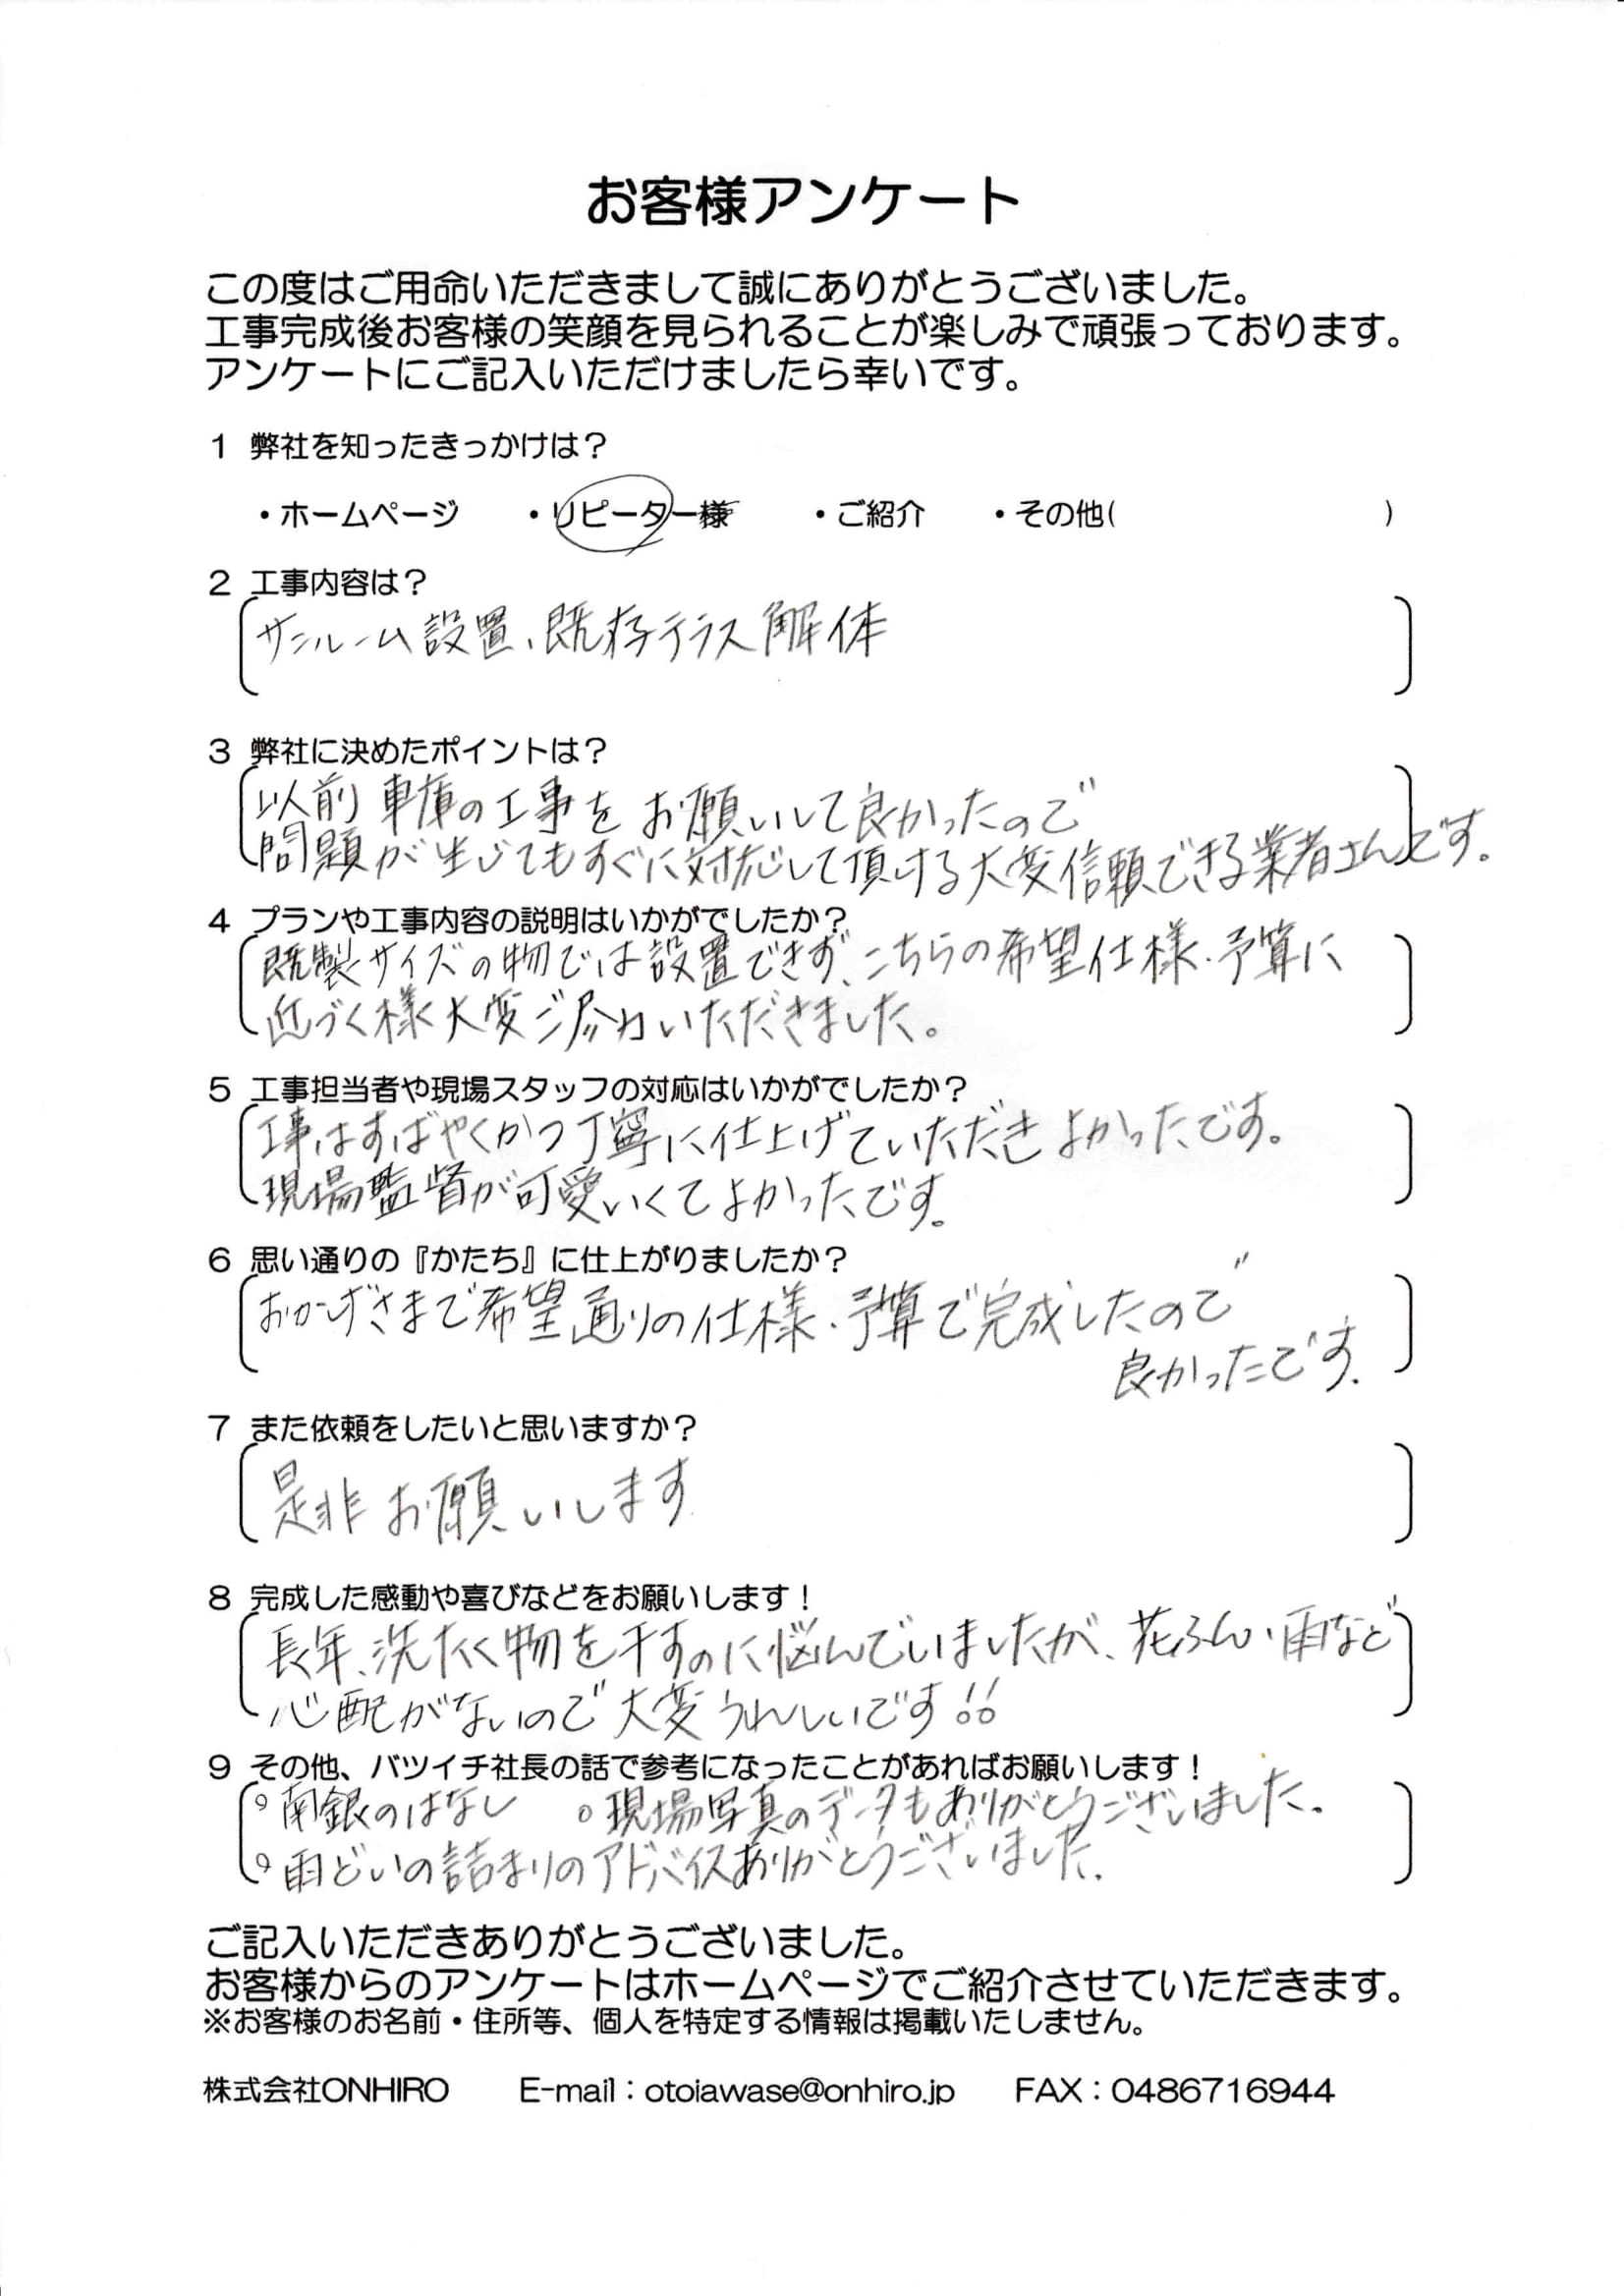 お客様アンケート
この度はご用命いただきまして誠にありがとうございました。
工事完成後お客様の笑顔を見られることが楽しみで頑張っております。
アンケートにご記入いただけましたら幸いです。
1 弊社を知ったきっかけは？
・ホームページ ・リピーター様 ・ご紹介 ・その他( )
2 工事内容は？
サンルーム設置、既存テラス解体
3 弊社に決めたポイントは？
以前車庫の工事をお願いして良かったので
問題が生じてもすぐに対応して頂ける大変信頼できる業者さんです。
4 プランや工事内容の説明はいかがでしたか？
既製サイズの物では設置できず、こちらの希望仕様・予算に
近づく様大変ご尽力いただきました。
5 工事担当者や現場スタッフの対応はいかがでしたか？
工事はすばやくかつ丁寧に仕上げていただきよかったです。
現場監督が可愛いくてよかったです。
6 思い通りの『かたち』に仕上がりましたか？
おかげさまで希望通りの仕様・予算で完成したので
良かったです.
7 また依頼をしたいと思いますか？
是非お願いします
8 完成した感動や喜びなどをお願いします！
長年、洗たく物を干すのに悩んでいましたが、花ふん・雨など
心配がないので大変うれしいです!!
9 その他、バツイチ社長の話で参考になったことがあればお願いします！
○南銀のはなし ○現場写真のデータもありがとうございました.
○雨どいの詰まりのアドバイスありがとうございました.
ご記入いただきありがとうございました。
お客様からのアンケートはホームページでご紹介させていただきます。
※お客様のお名前・住所等、個人を特定する情報は掲載いたしません。
株式会社ONHIRO E-mail：otoiawase@onhiro.jp FAX：0486716944